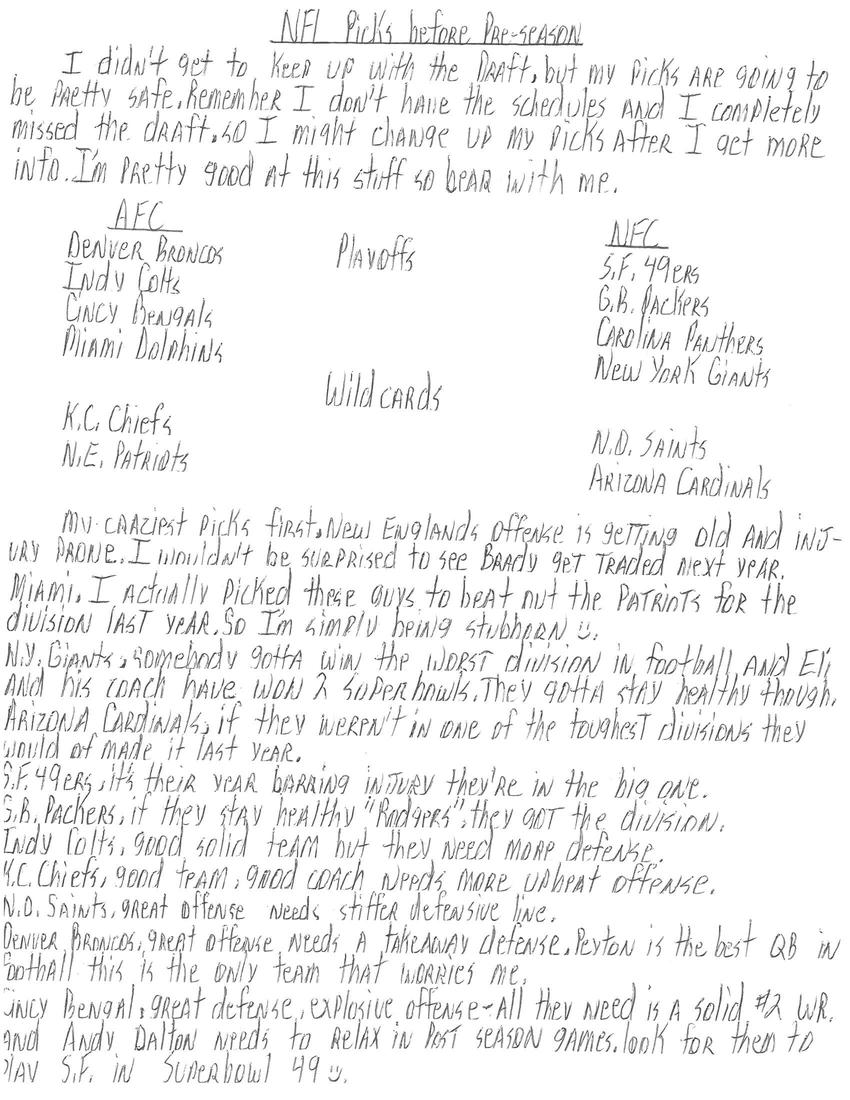 NFL Picks before Pre-season
I didn't get to keep up with the Draft, but my picks are going to
be pretty safe. Remember I don't have the schedules and I completely
missed the draft, so I might change up my picks after I get more
info. I'm pretty good at this stuff so bear with me.
AFC
Denver Broncos
Indy Colts
Cincy Bengals
Miami Dolphins
Playoffs
NFC
S.F. 49ers
G.B. Packers
Carolina Panthers
New York Giants
Wild cards
K.C. Chiefs
N.E. Patriots
N.O. Saints
Arizona Cardinals
My craziest picks first, New Englands offense is getting old and inj-
ury prone. I wouldn't be surprised to see Brady get traded next year.
Miami, I actually picked these guys to beat out the Patriots for the
division last year. So I'm simply being stubborn ☺.
N.Y. Giants, somebody gotta win the worst division in football, and Eli,
and his coach have won 2 Superbowls. They gotta stay healthy though.
Arizona Cardinals, if they weren't in one of the toughest divisions they
would of made it last year.
S.F. 49ers, it's their year barring injury they're in the big one.
G.B. Packers, if they stay healthy "Rodgers", they got the division.
Indy Colts, good solid team but they need more defense.
K.C. Chiefs, good team, good coach needs more upbeat offense.
N.O. Saints, great offense needs stiffer defensive line.
Denver Broncos, great offense needs a takeaway defense. Peyton is the best QB in
football this is the only team that worries me.
Cincy Bengal, great defense, explosive offense - All they need is a solid #2 WR.
and Andy Dalton needs to relax in post season games. look for them to
play S.F. in Superbowl 49 ☺.